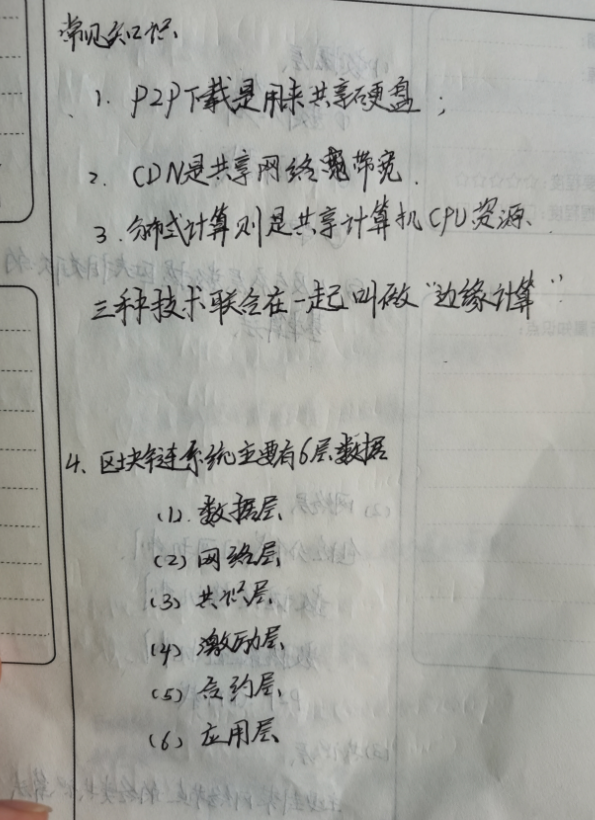 常见知识
1. P2P下载是用来共享硬盘;
2. CDN是共享网络带宽.
3.分布式计算则是共享计算机CPU资源、
三种技术联合在一起叫做“边缘计算”
4、区块链系统主要有6层数据
(1).数据层、
(2)网络层、
(3)共识层、
(4)激励层、
(5)合约层、
(6)应用层、